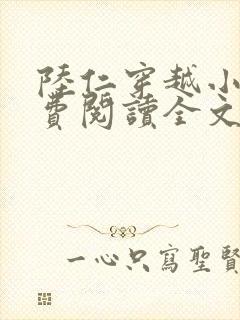 陸仁穿越小
費閱讀全文
一心只寫聖賢